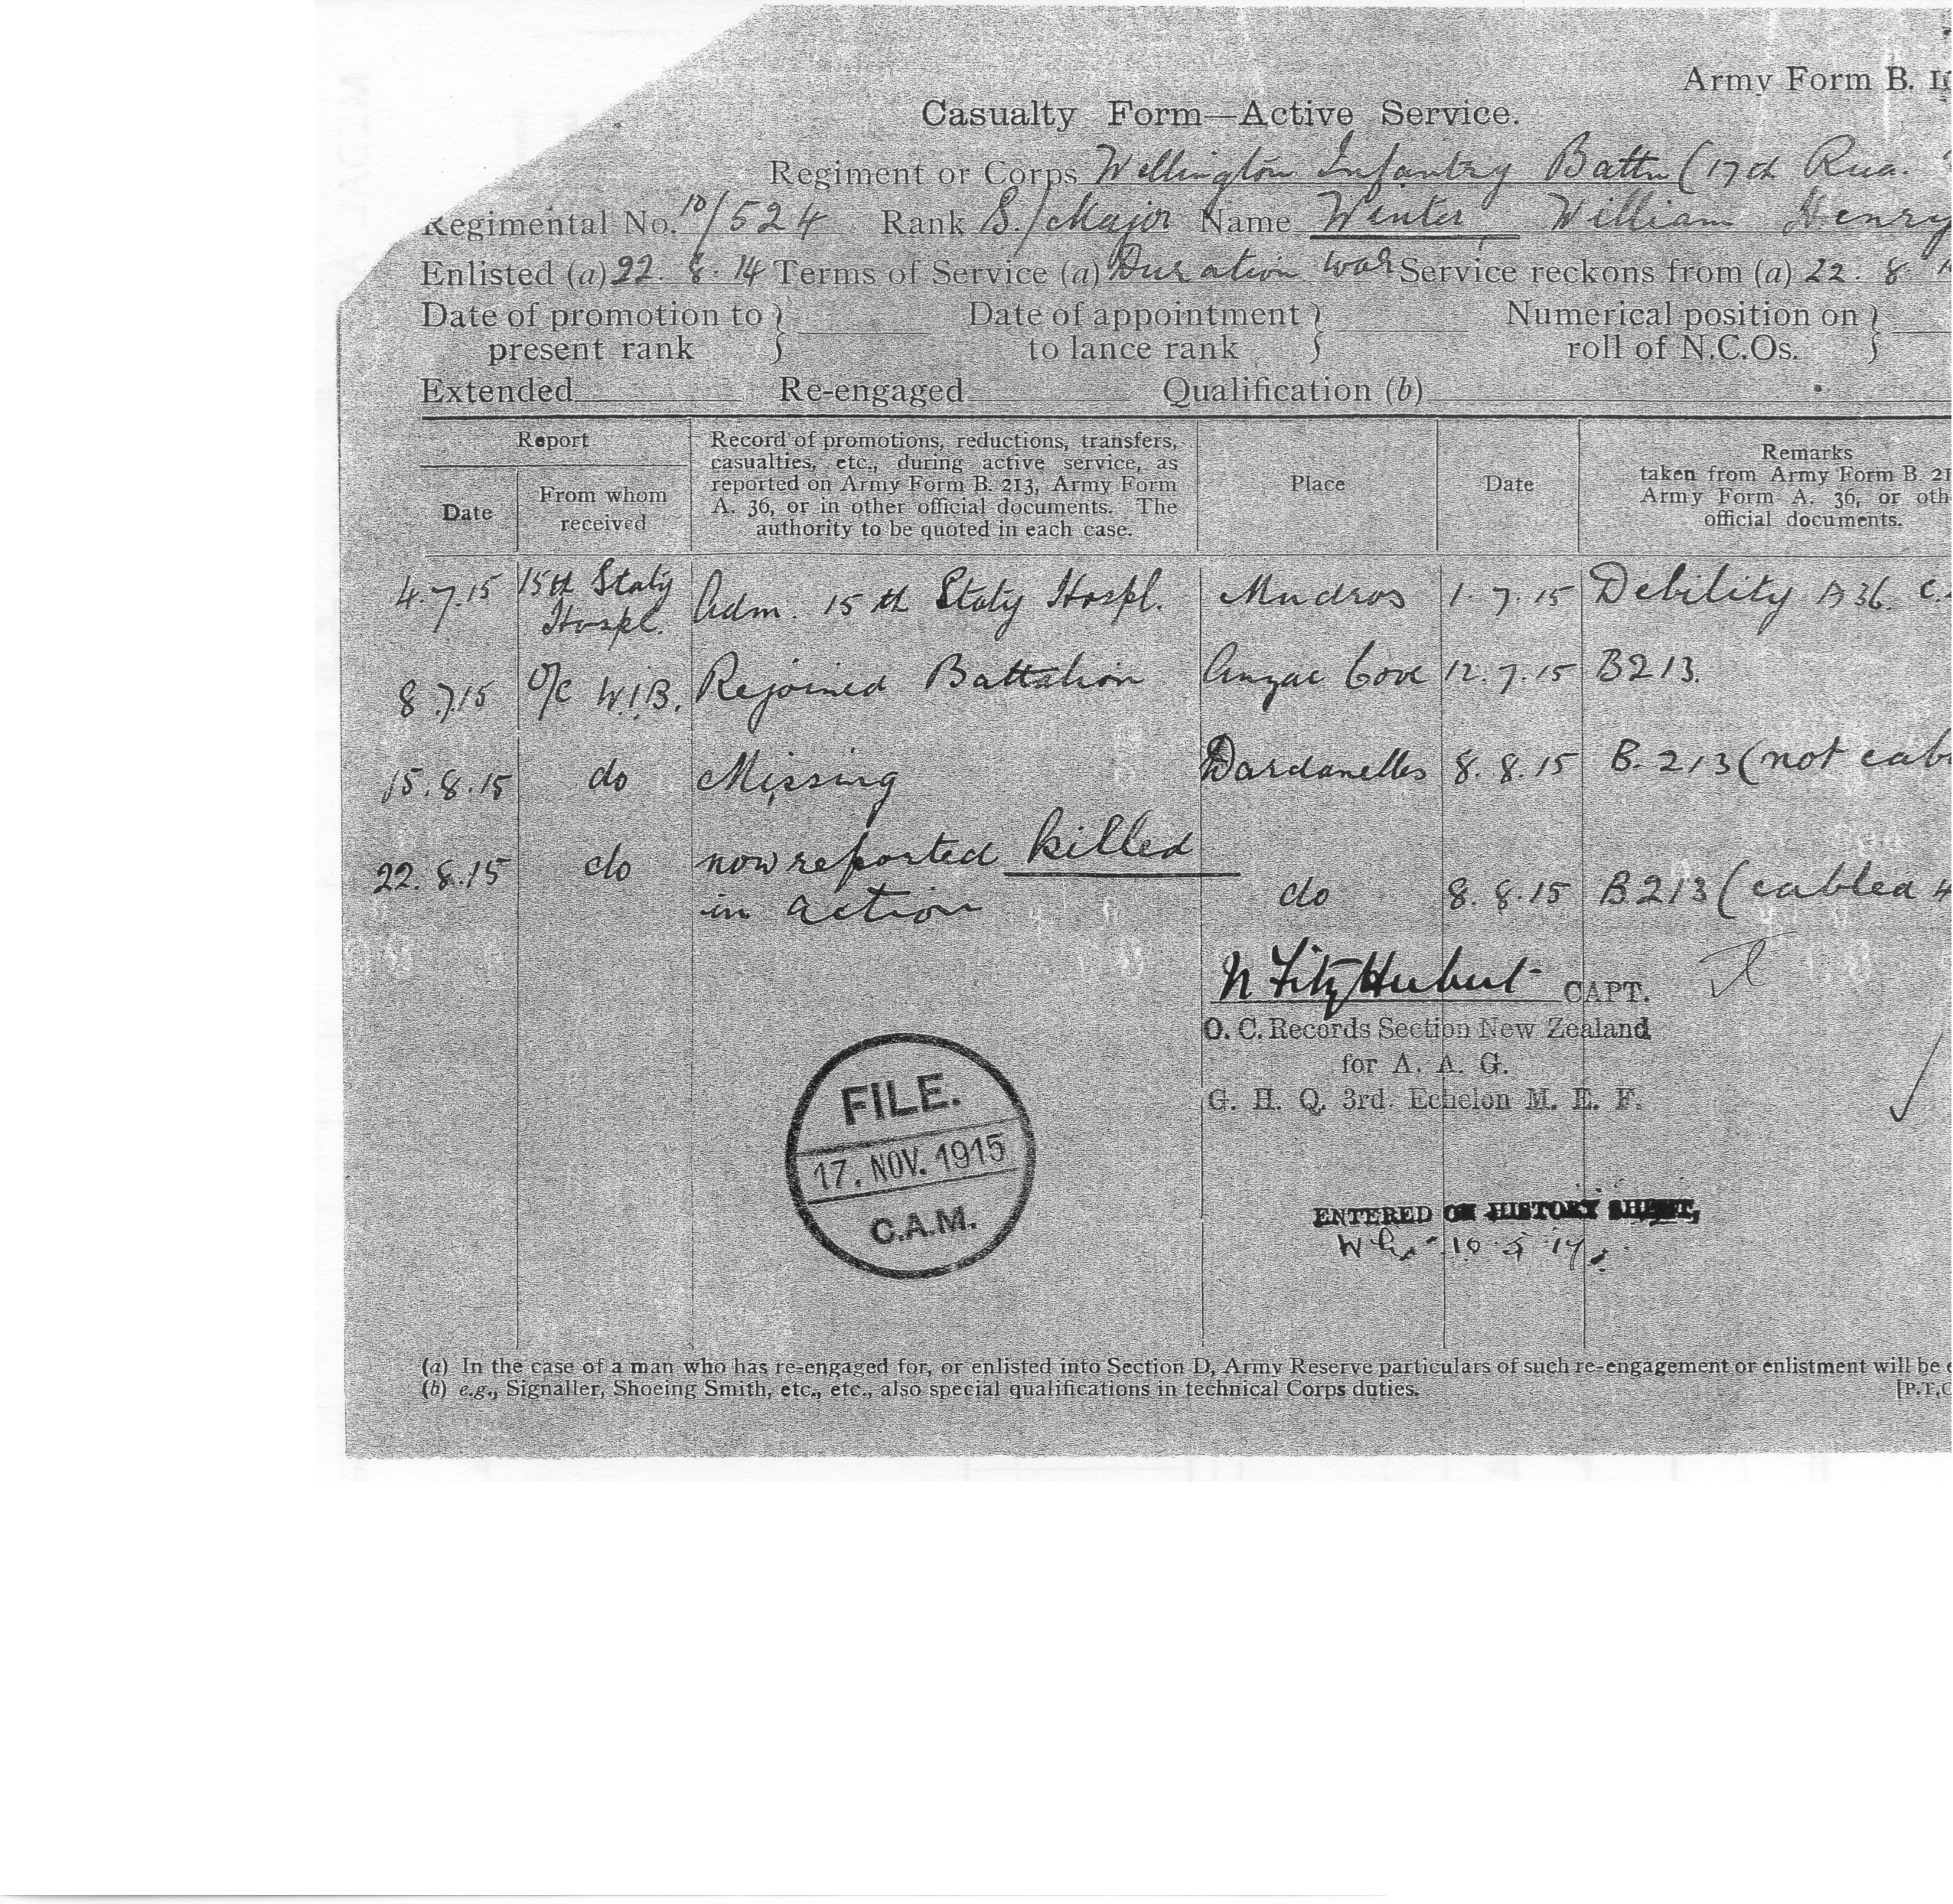 Army Form B.
Casualty Form—Active Service.
Regiment or Corps Wellington Infantry Battn (17th Rua.
Regimental No. 10/524 Rank S./Major Name Winter, William Henry
Enlisted (a) 22. 8. 14 Terms of Service (a) Duration War Service reckons from (a) 22. 8
Date of promotion to present rank } Date of appointment to lance rank } Numerical position on roll of N.C.Os. }
Extended Re-engaged Qualification (b)
Report
Date
From whom
received
Record of promotions, reductions, transfers,
casualties, etc., during active service, as
reported on Army Form B. 213, Army Form
A. 36, or in other official documents. The
authority to be quoted in each case.
Place
Date
Remarks
taken from Army Form B. 21
Army Form A. 36, or oth
official documents.
4.7.15 15th Staty Hospl. Adm. 15th Staty Hospl. Mudros 1.7.15 Debility B36. C.
8.7.15 O/C W.I.B. Rejoined Battalion Anzac Cove 12.7.15 B213.
15.8.15 do Missing Dardanelles 8.8.15 B.213 (not cab
22.8.15 do now reported killed
in action do 8.8.15 B213 (cabled 4
N FitzHerbert CAPT.
O. C. Records Section New Zealand
for A. A. G.
G. H. Q. 3rd. Echelon M. E. F.
FILE.
17. NOV. 1915
C.A.M.
ENTERED ON HISTORY SHEET,
(a) In the case of a man who has re-engaged for, or enlisted into Section D, Army Reserve particulars of such re-engagement or enlistment will be
(b) e.g., Signaller, Shoeing Smith, etc., etc., also special qualifications in technical Corps duties.
[P.T.O